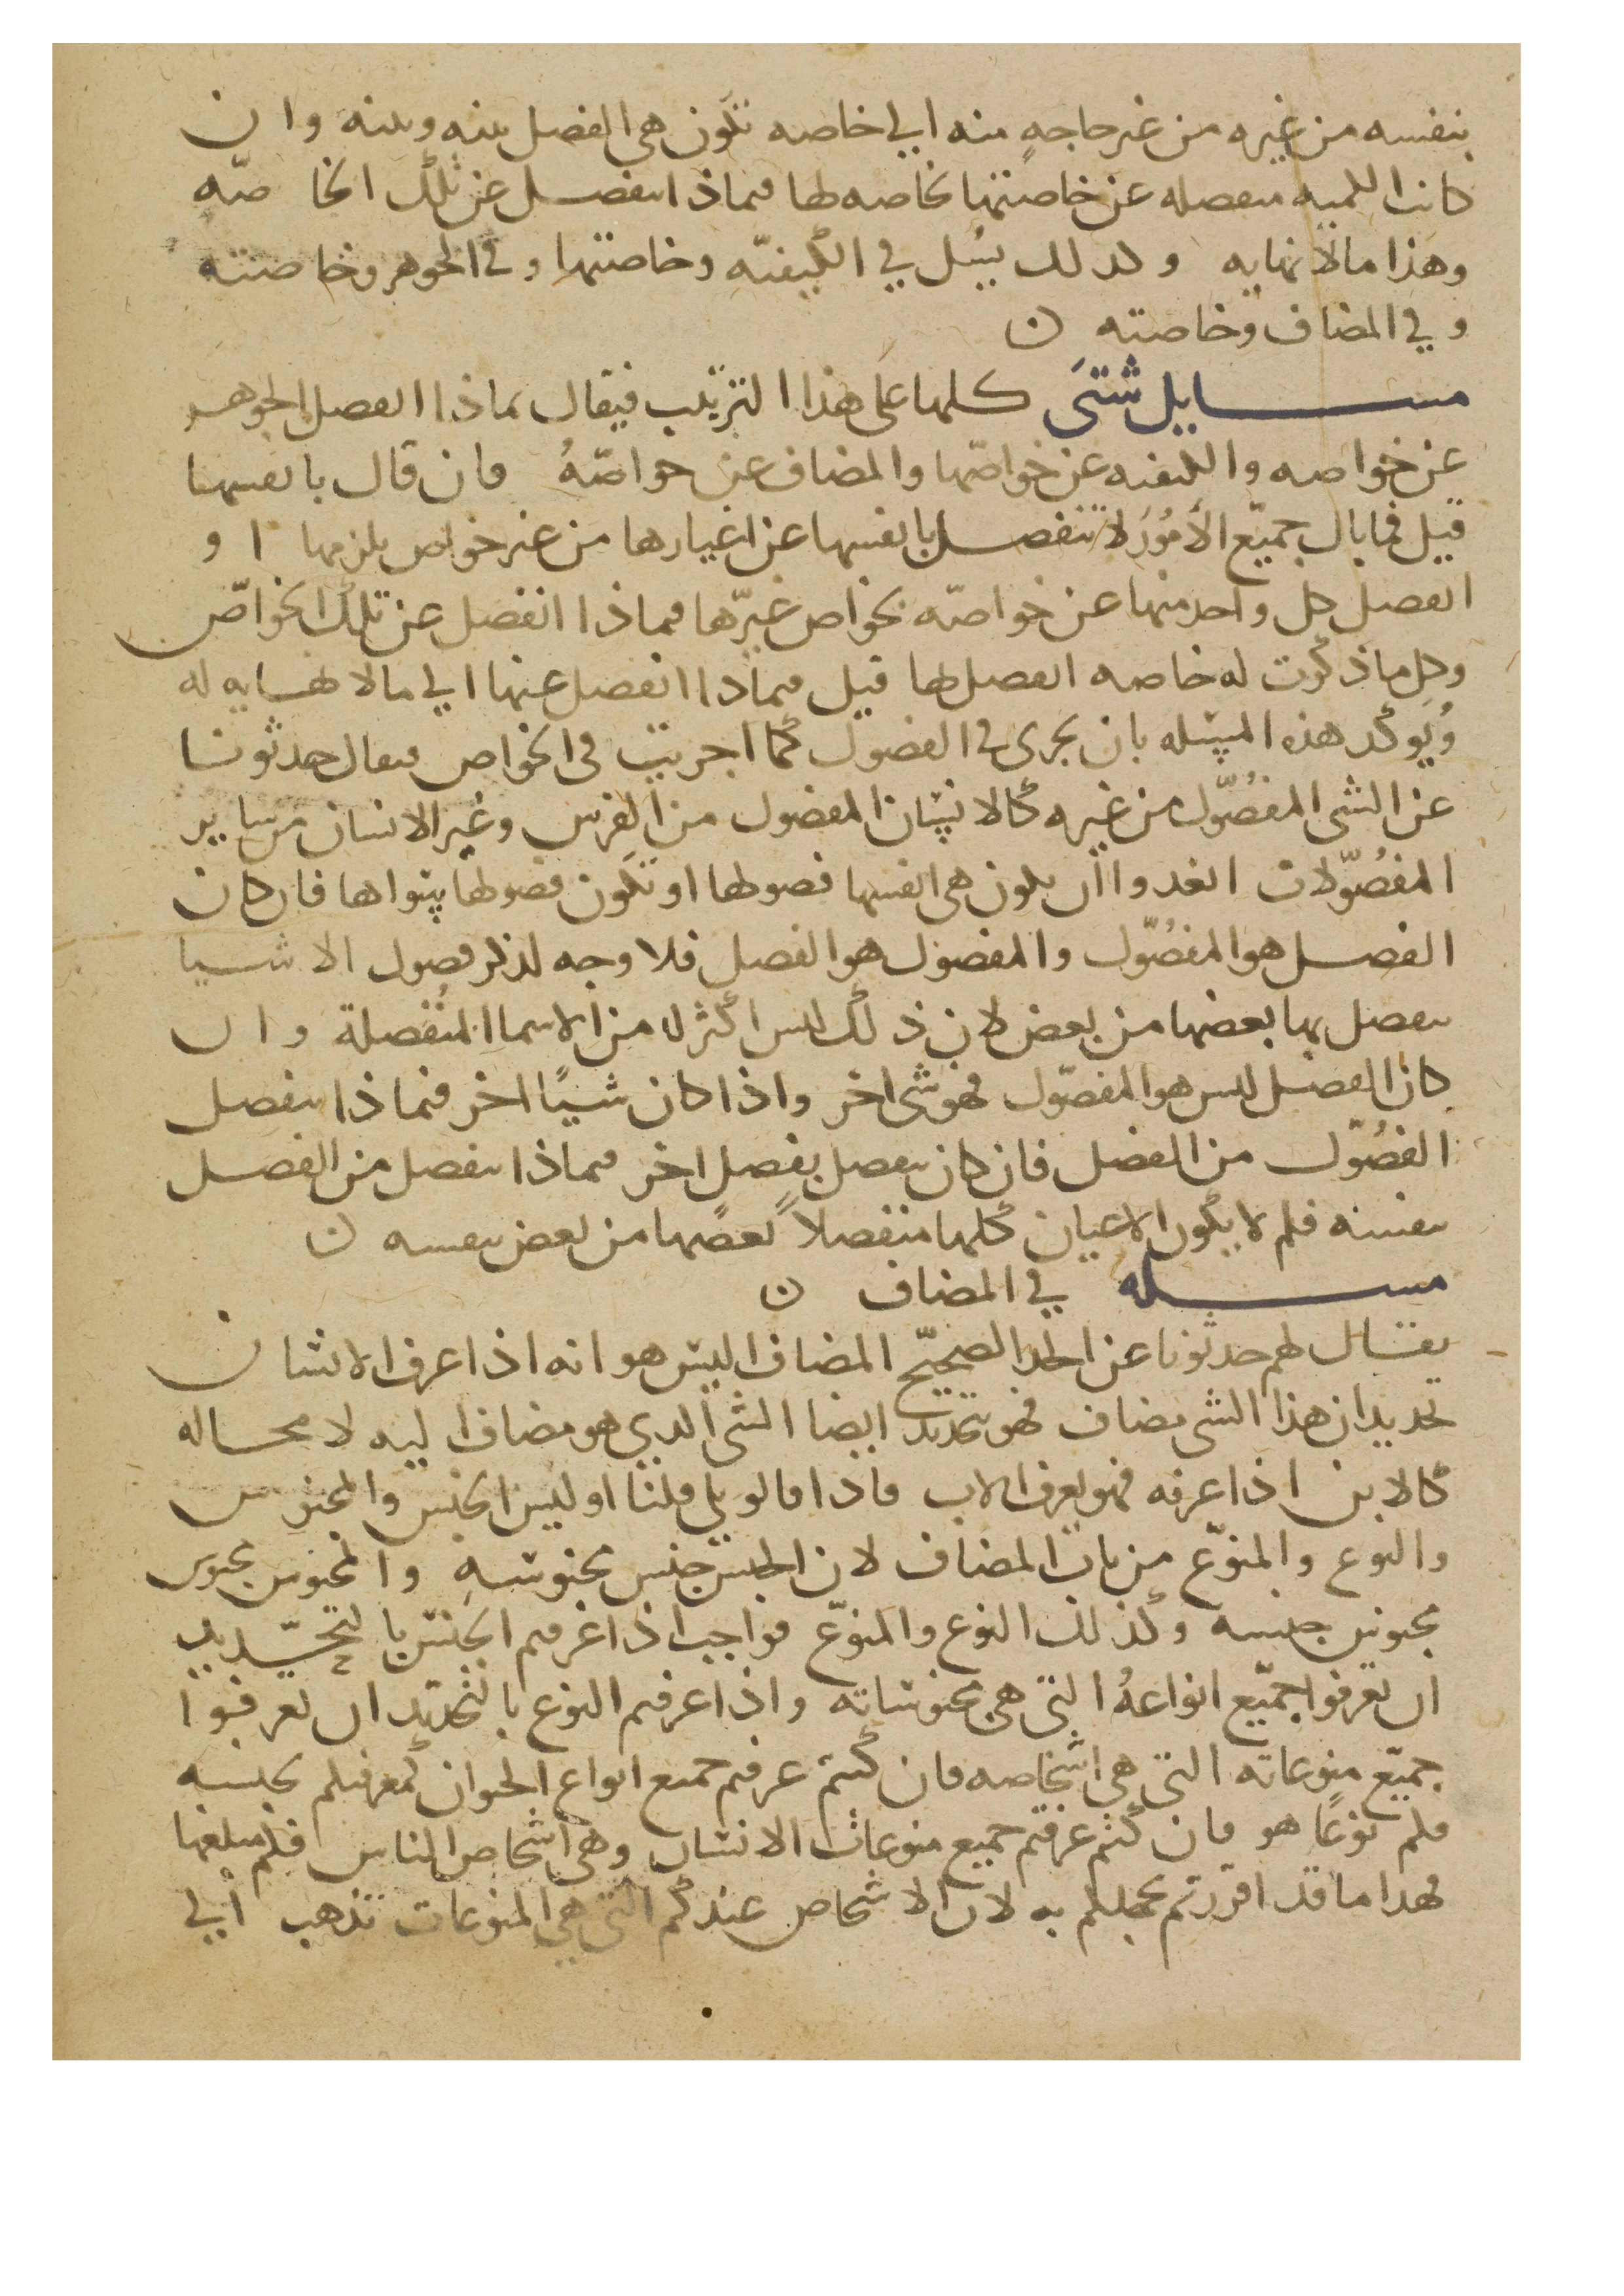 بنفسه من غيره من غير حاجةٍ منه الي خاصه تكون هي الفصل بينه وبينه وان
كانت الكميه منفصله عن خاصتها بخاصه لها فبماذا انفصل عن تلك الخاصّه
وهذا مالا نهايه وكذلك يسل في الكيفيّه وخاصتها وفي الجوهر وخاصته
وفي المضاف وخاصته ن
مسايل شتىَ كلها عَلى هذا الترتيب فيقال بماذا انفصل الجوهر
عن خواصه والكيفيه عن خواصّها والمضاف عن خواصّهُ فان قال بانفسها
قيل فما بال جميّع الأمُوُر لا تنفصل بانفسها عن اغيارها من غير خواص يلزمها او
انفصل كل واحد منها عن خواصّه بخواص غيرّها فبماذا انفصل عن تلك الخواصّ
وكل ما ذكرت له خاصه انفصل لها قيل فبماذا انفصل عنها الي مالا نهايه له
وُيوكد هذه المسله بان يجرى في الفصول كما اجريت في الخواص فيقال حدثونا
عن الشى المفصُوّل من غيره كالانسان المفصول من الفرس وغير الانسان من ساير
المفصُوّلات اتعدوا ان يكون هي انفسها فصولها او تكون فصولها سواها فان كان
الفصل هو المفصُوّل والمفصول هو الفصل فلا وجه لذكر فصول الاشيا
ينفصل بها بعضها من بعض لان ذلك ليس اكثر له من الاسما المنُفصلة وان
كان الفصل ليس هو المفصّول فهو شى اخر واذا كان شيًا اخر فبماذا ينفصل
الفصُوّل من الفصل فان كان ينفصل بفصل اخر فبماذا ينفصل من الفصل
بنفسه فلم لا يكون الاعيان كلها منفصلاً بعضها من بعض بنفسه ن
مسله في المضاف ن
يقال لهم حدثونا عن الحد الصحيّح المضاف اليس هو انه اذا عرف الانسان
تحديد ان هذا الشى مضاف فهو بتحديد ايضا الشى الدي هو مضاف اليه لا محاله
كالابن اذا عرفه فهو يعرف الاب فاذا قالو بلي قلنا او ليس الجنس والمجنوس
والنوع والمنوّع من باب المضاف لان الجنس جنس بمجنوسهِ والمجنوس مجنوس
بجنسه وكذلك النوع والمنوّع فواجب اذا عرفتم الجنس بالتحّديد
ان تعرفوا جميّع انواعهُ التي هي مجنوساته واذا عرفتم النوع بالتحديد ان تعرفوا
جميّع منوعاته التي هي اشخاصه فان كنتم عرفتم جميع انواع الحيوان كمعرفتكم بجنسه
فكم نوعًا هو وان كنتم عرفتم جميع منوعاث الانسان وهي اشخاص الناس فكم مبلغها
فهذا ما قد اقررتم بجهلكم به لان الاشخاص عندكم التي هي المنوعات تذهب الي